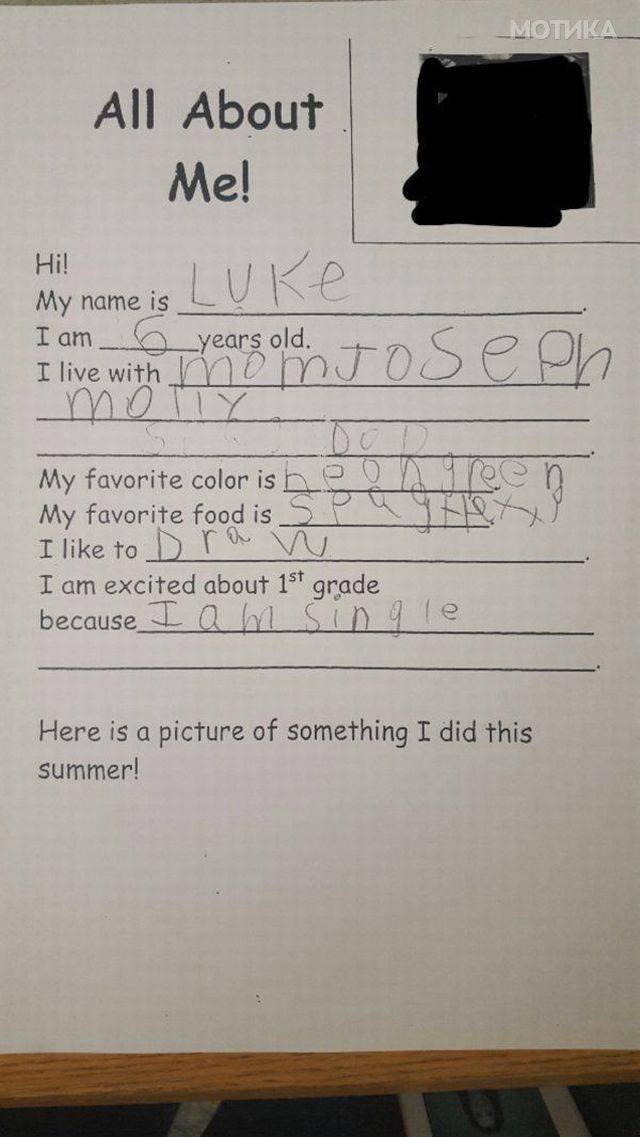 МОТИКА
All About
Me!
Hi!
My name is LUKe.
I am 6 years old.
I live with mom Joseph
molly
DOD.
My favorite color is neon green
My favorite food is
I like to Draw.
I am excited about 1st grade
because I am single
Here is a picture of something I did this
summer!